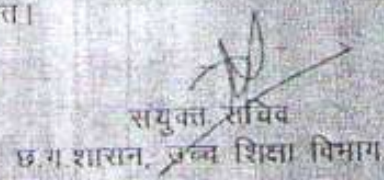 त।
संयुक्त सचिव
छ.ग.शासन, उच्च शिक्षा विभाग